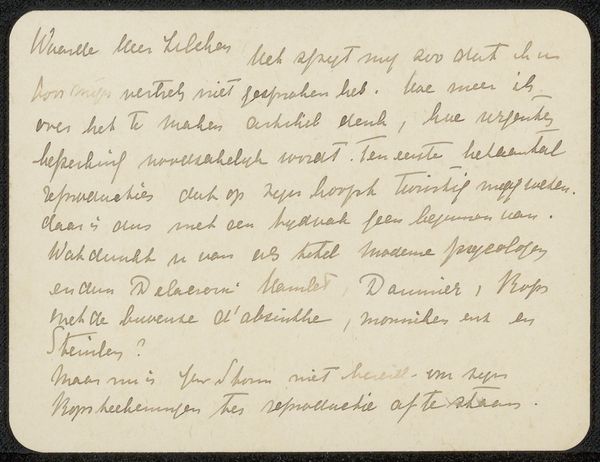 Waarde Heer Zilcken Het spijt mij zoo dat ik u
voor mijn vertrek niet gesproken heb. Hoe meer ik
over het te maken artikel denk, hoe urgenter
beperking noodzakelijk wordt. Ten eerste het aantal
reproducties dat op zijn hoogst twintig mag wezen.
daar is dus met een tijdvak geen beginnen van.
Wat dunkt u van als titel moderne psycologen
en dan Delacroix Hamlet, Daumier, Rops
met de buveuse d'absinthe, monniken enz en
Steinlen?
Maar nu is Jhr Storm niet bereid om zijn
Ropsteekeningen ter reproductie af te staan.